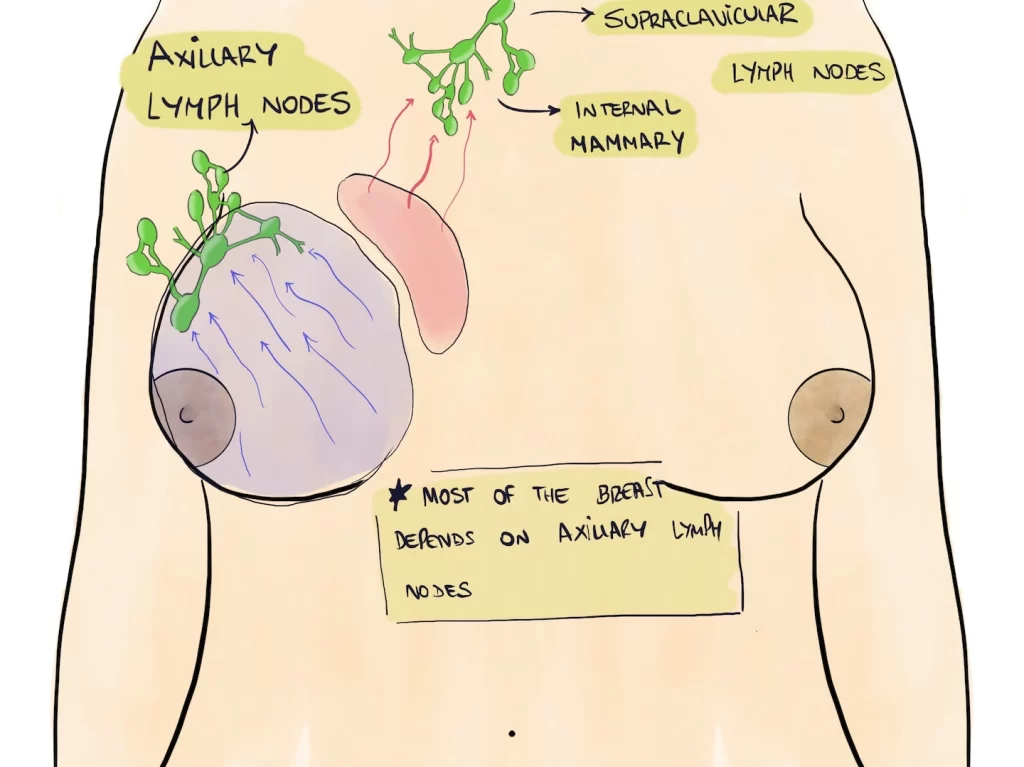 AXILLARY
LYMPH NODES
SUPRACLAVICULAR
LYMPH NODES
INTERNAL
MAMMARY
★ MOST OF THE BREAST
DEPENDS ON AXILLARY LYMPH
NODES